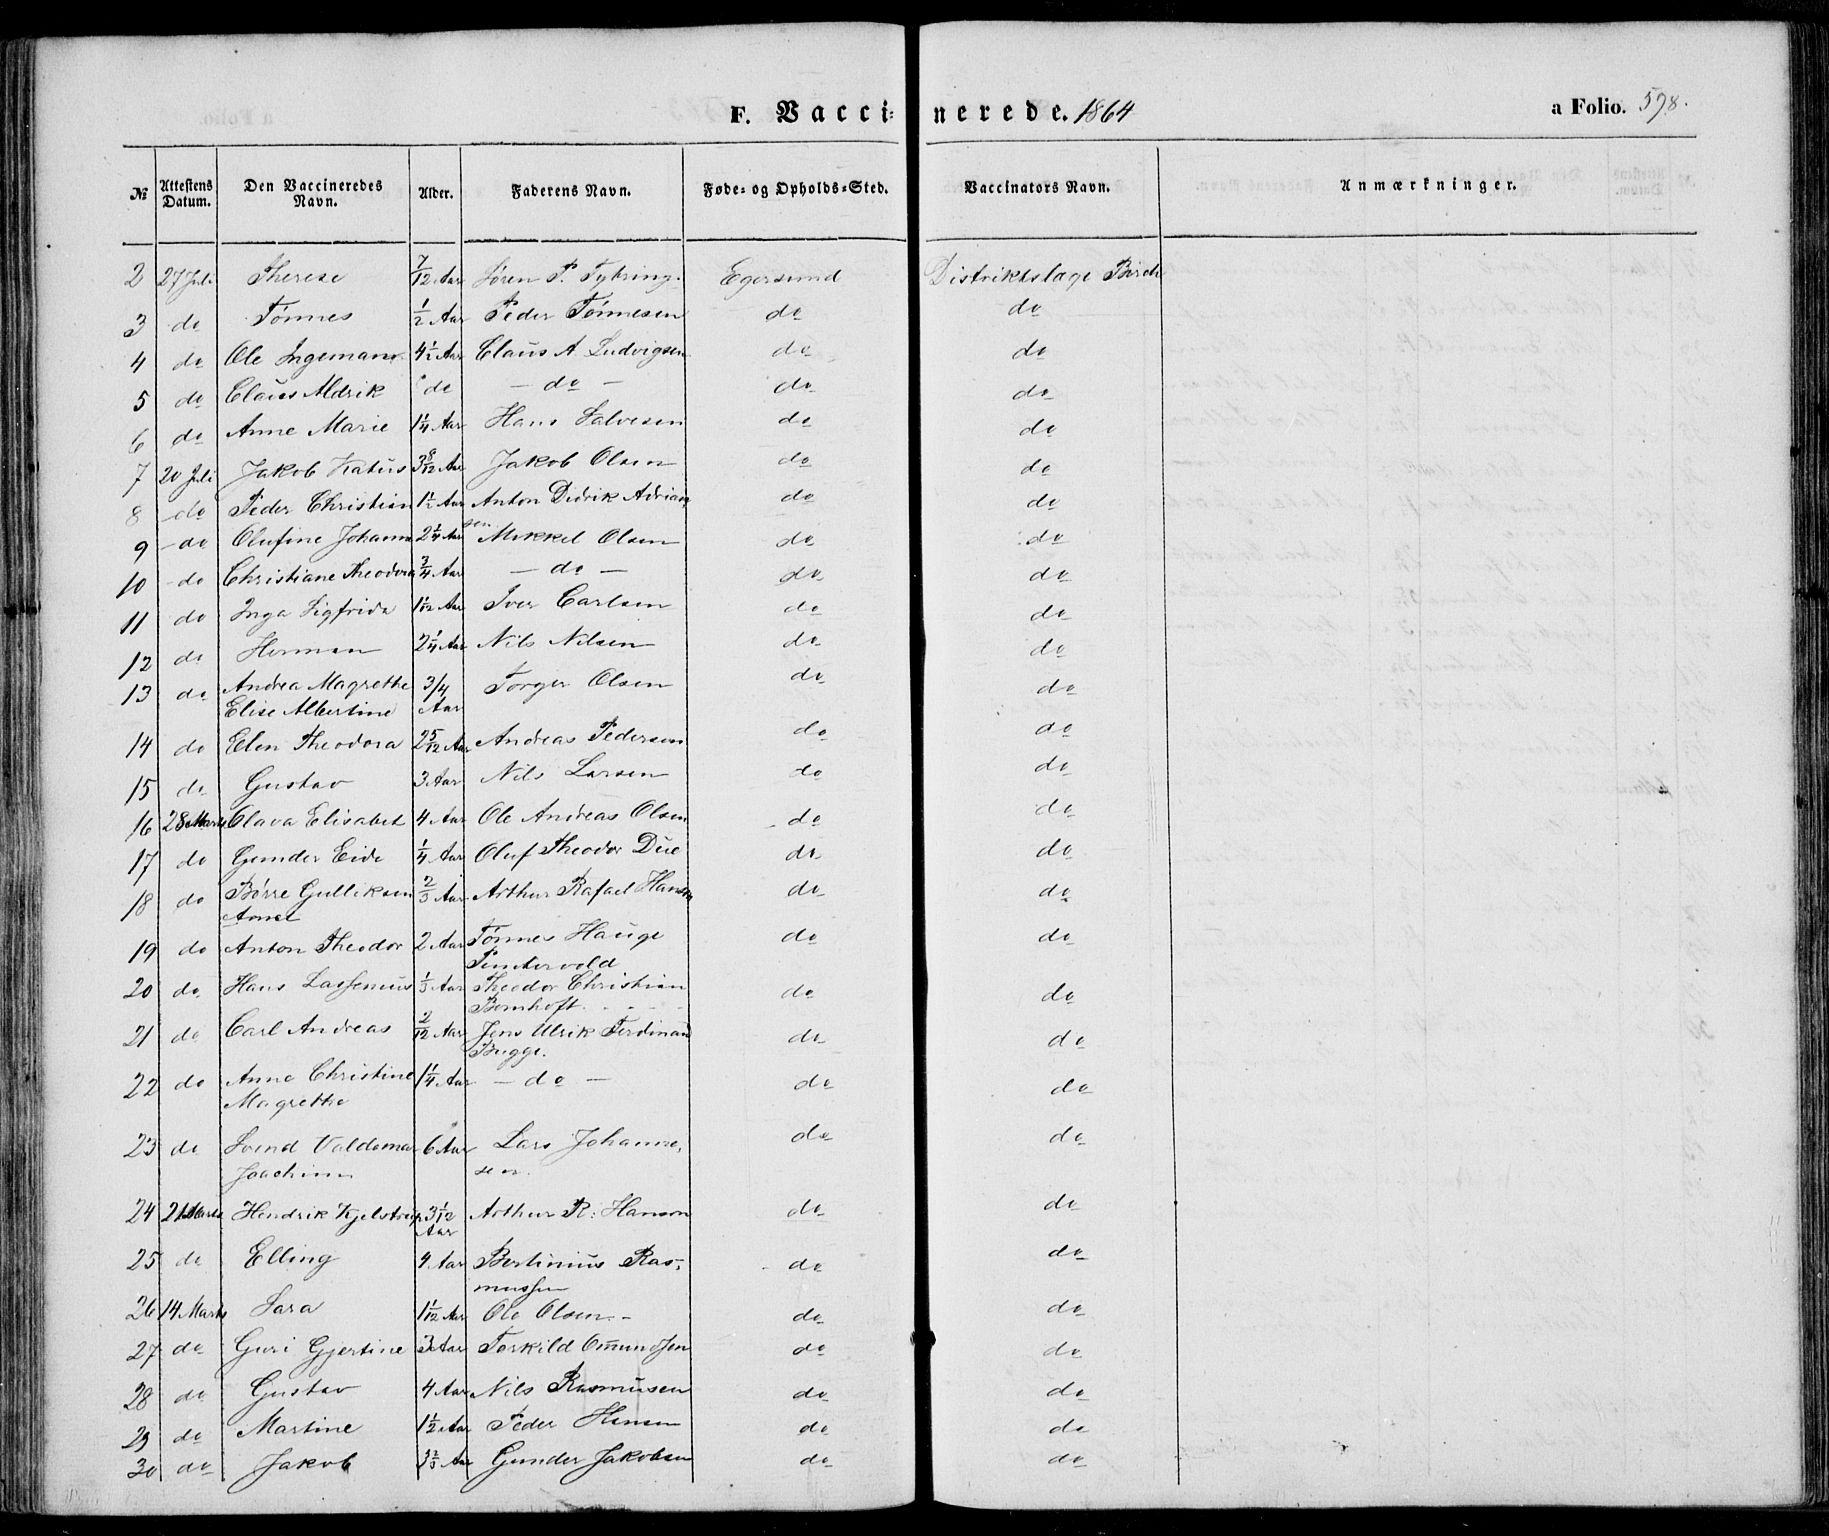 F. Vaccinerede. 1864
a Folio. 598.
№ Attestens Datum. Den Vaccineredes Navn. Alder. Faderens Navn. Føde- og Opholds-Sted. Vaccinators Navn. Anmærkninger.
2 27 Juli Therese 7/12 Aar Søren P. Egersund Distriktslæge Birch
3 do Tønnes 1/2 Aar Peder Tønnesen do do
4 do Ole Ingemann 4 1/2 Aar Claus A. Ludvigsen do do
5 do Claus Aldrik do - do - do do
6 do Anne Marie 1 1/4 Aar Hans Salvesen do do
7 20 Juli Jakob 3 8/12 Aar Jakob Olsen do do
8 do Peder Christian 1 1/2 Aar Anton Didrik Adrian-
sen do do
9 do Olufine Johanne 2 1/4 Aar Mikkel Olsen do do
10 do Christiane Theodora 3/4 Aar - do - do do
11 do Inga Sigfrida 1 1/12 Aar Iver Carlsen do do
12 do Herman 2 1/4 Aar Nils Nilsen do do
13 do Andrea Magrethe 3/4 Torger Olsen do do
Elise Albertine Aar
14 do Elen Theodora 2 5/12 Aar Andreas Pedersen do do
15 do Gustav 3 Aar Nils Larsen do do
16 28 Marts Olava Elisabet 4 Aar Ole Andreas Olsen do do
17 do Gunder Eide 1/4 Aar Oluf Theodor Due do do
18 do Børre Gulliksen 2/3 Aar Arthur Rafael Hanson do do
19 do Anton Theodor 2 Aar Tønnes Hauge do do
20 do Hans Lassenius 1/3 Aar Theodor Christian do do
Bomhoft.
21 do Carl Andreas 2/12 Aar Jens Ulrik Ferdinand do do
Bugge.
22 do Anne Christine 1 1/4 Aar - do - do do
Magrethe
23 do Svend Valdemar 6 Aar Lars Johanne- do do
Joachim sen.
24 21 Marts Hendrik Kjelstrup 3 1/12 Arthur R. Hanson do do
Aar
25 do Elling 4 Aar Bertinius Ras- do do
mussen
26 14 Marts Sara 1 1/12 Aar Ole Olsen do do
27 do Guri Gjertine 3 Aar Torkild Omundsen do do
28 do Gustav 4 Aar Nils Rasmusen do do
29 do Martine 1 1/2 Aar Peder Hansen do do
30 do Jakob Aar Gunder Jakobsen do do